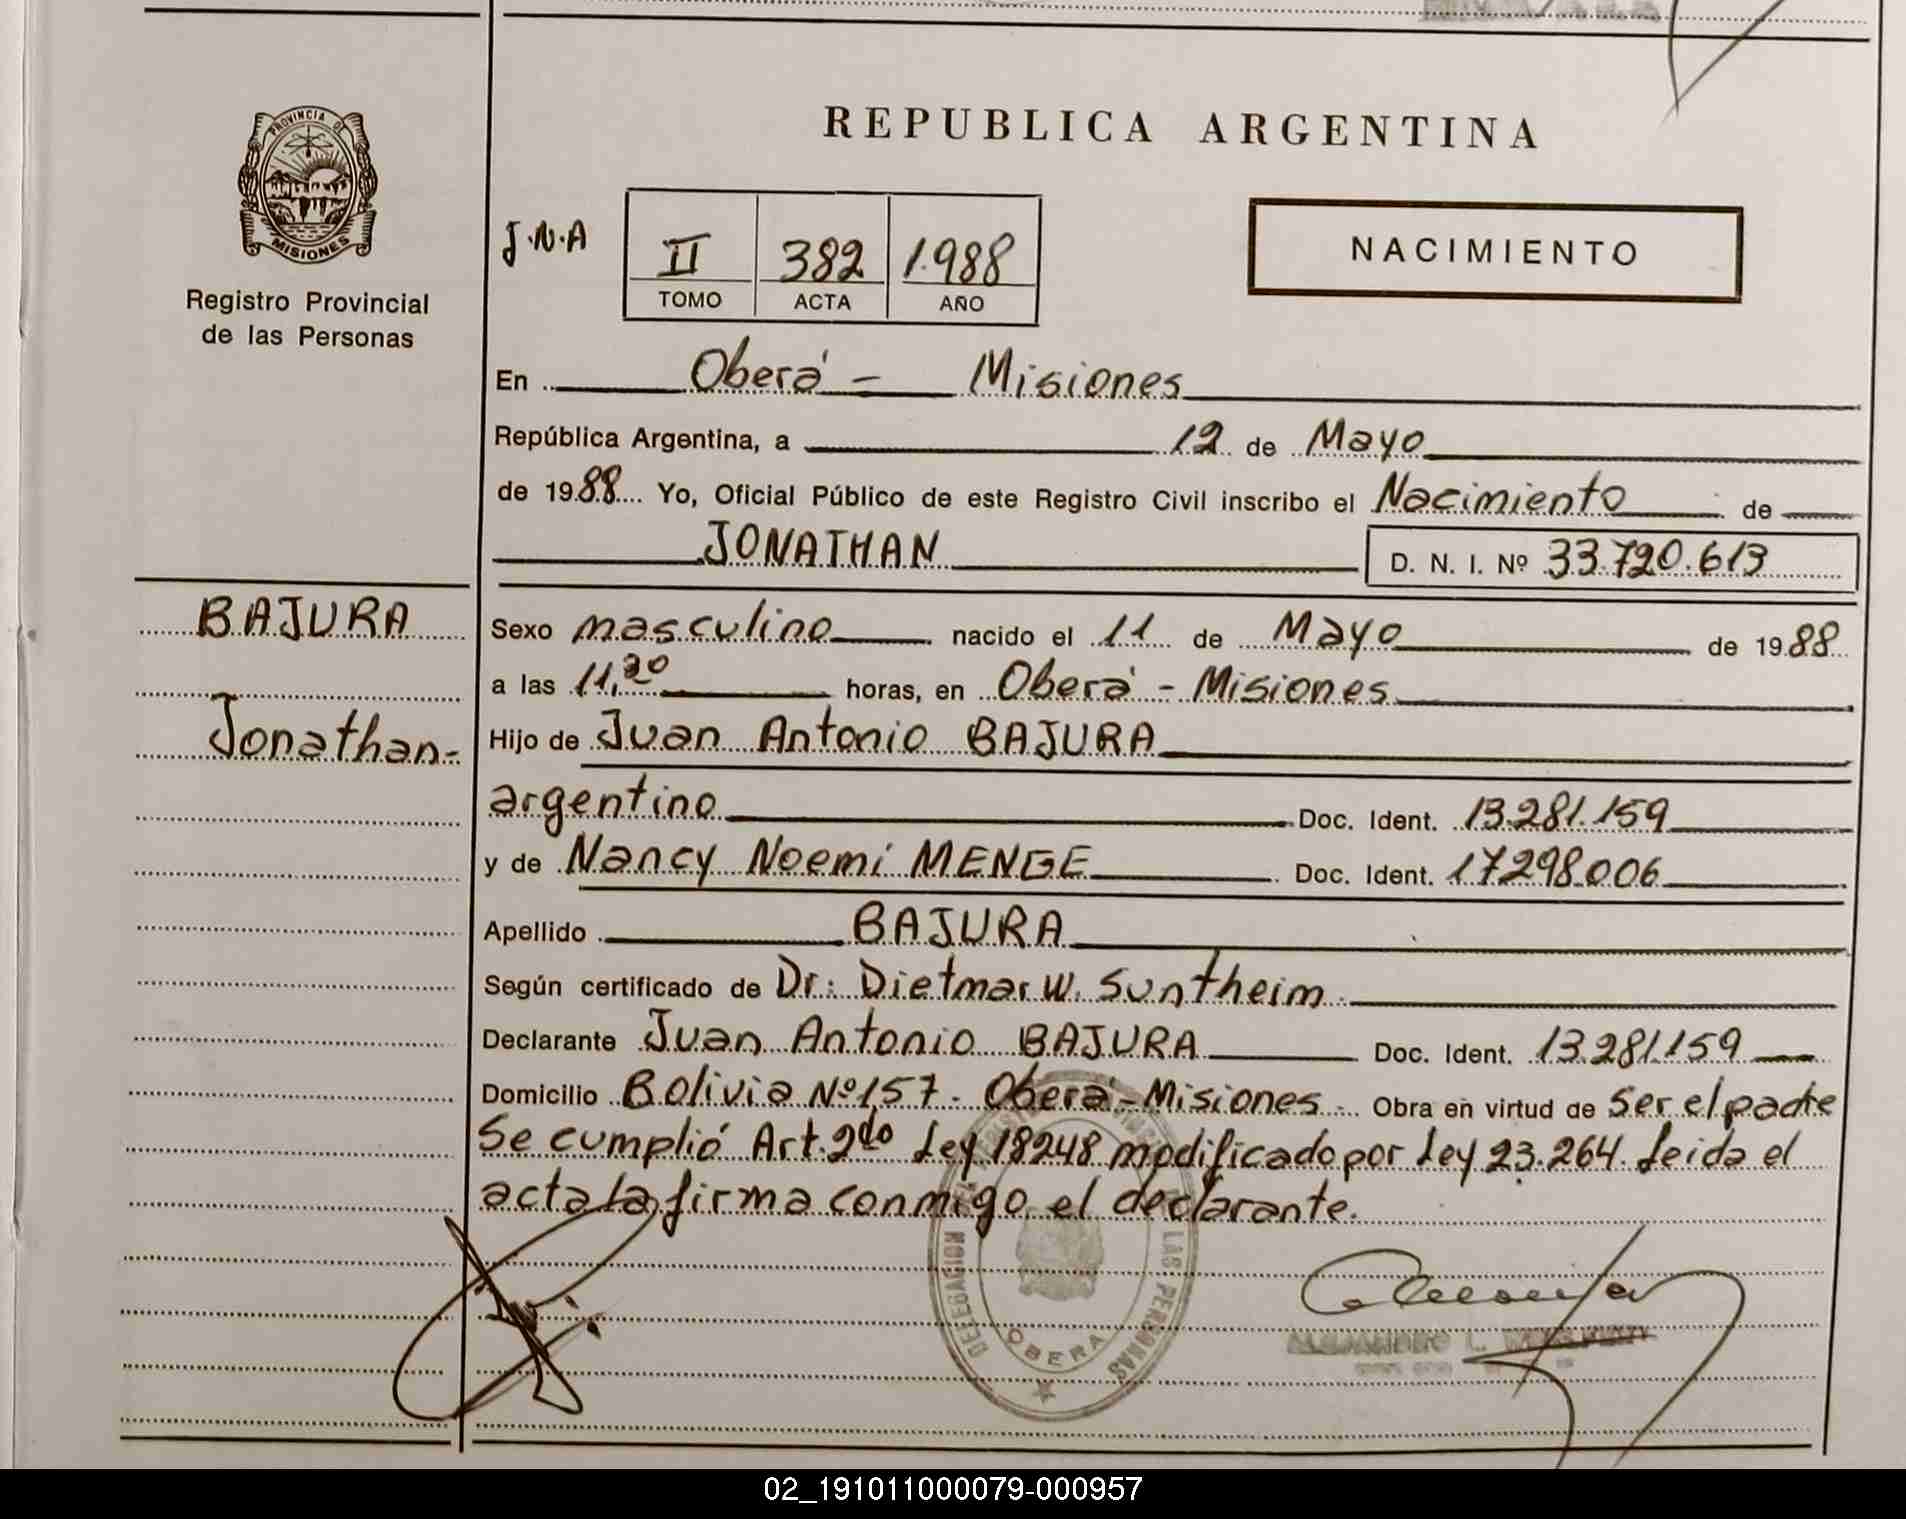 REPUBLICA ARGENTINA
PROVINCIA DE
MISIONES
Registro Provincial
de las Personas
J.N.A
II 382 1.988
TOMO ACTA AÑO
NACIMIENTO
En Oberá - Misiones
República Argentina, a 12 de Mayo
de 1988 Yo, Oficial Público de este Registro Civil inscribo el Nacimiento de
JONATHAN D. N. I. Nº 33.720.613
BAJURA
Jonathan-
Sexo masculino nacido el 11 de Mayo de 1988
a las 11,20 horas, en Oberá - Misiones
Hijo de Juan Antonio BAJURA
argentino Doc. Ident. 13.281.159
y de Nancy Noemi MENGE Doc. Ident. 17298.006
Apellido BAJURA
Según certificado de Dr: Dietmar W. Suntheim.
Declarante Juan Antonio BAJURA Doc. Ident. 13.281.159
Domicilio Bolivia Nº 157 - Oberá - Misiones - Obra en virtud de Ser el padre
Se cumplió Art. 2do Ley 18248 modificado por Ley 23.264. Leida el
acta la firma conmigo el declarante.
DELEGACION
LAS PERSONAS
OBERA
02_191011000079-000957